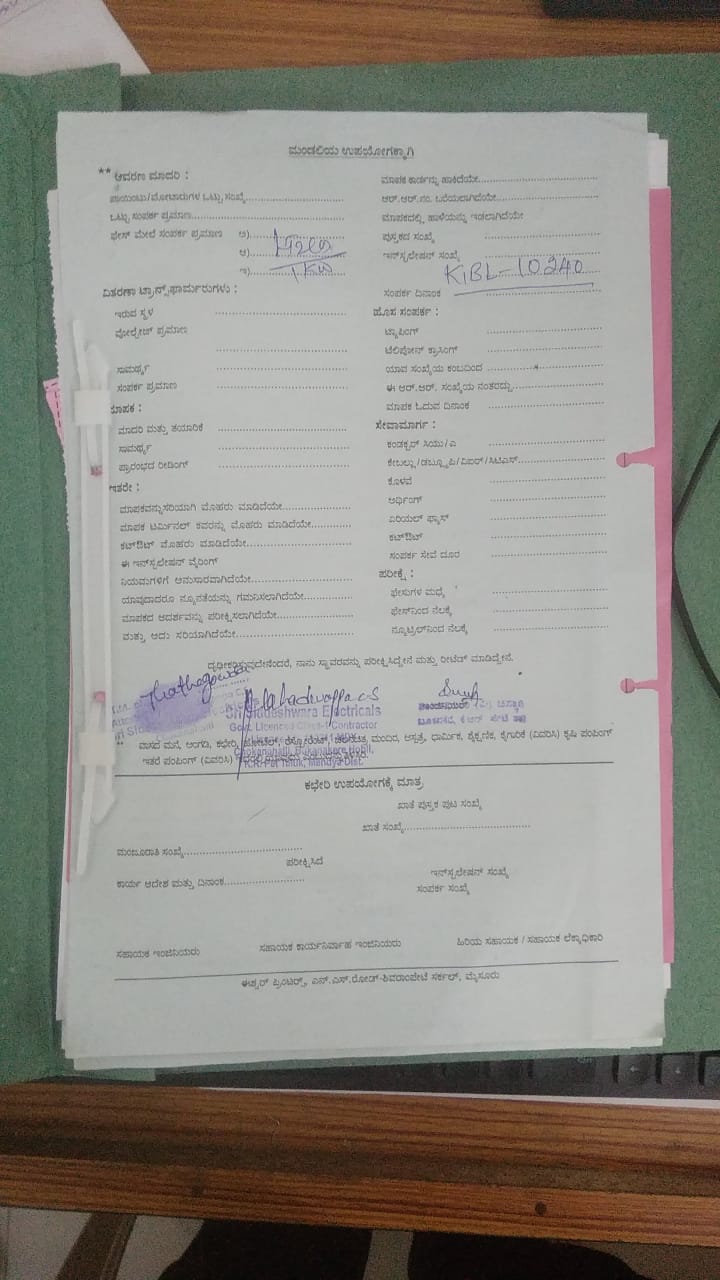 ಮಂಡಲಿಯ ಉಪಯೋಗಕ್ಕಾಗಿ
** ಆವರಣ ಮಾದರಿ :
ಪಾಯಿಂಟು/ಮೋಟಾರುಗಳ ಒಟ್ಟು ಸಂಖ್ಯೆ
ಒಟ್ಟು ಸಂಪರ್ಕ ಪ್ರಮಾಣ
ಫೇಸ್ ಮೇಲೆ ಸಂಪರ್ಕ ಪ್ರಮಾಣ ಅ)
ಆ)
ಇ) 1KW
ವಿತರಣಾ ಟ್ರಾನ್ಸ್‌ಫಾರ್ಮರುಗಳು :
ಇರುವ ಸ್ಥಳ
ವೋಲ್ಟೇಜ್ ಪ್ರಮಾಣ
ಸಾಮರ್ಥ್ಯ
ಸಂಪರ್ಕ ಪ್ರಮಾಣ
ಮಾಪಕ :
ಮಾದರಿ ಮತ್ತು ತಯಾರಿಕೆ
ಸಾಮರ್ಥ್ಯ
ಪ್ರಾರಂಭದ ರೀಡಿಂಗ್
ಇತರೇ :
ಮಾಪಕವನ್ನು ಸರಿಯಾಗಿ ಮೊಹರು ಮಾಡಿದೆಯೇ
ಮಾಪಕ ಟರ್ಮಿನಲ್ ಕವರನ್ನು ಮೊಹರು ಮಾಡಿದೆಯೇ
ಕಟ್‌ಔಟ್ ಮೊಹರು ಮಾಡಿದೆಯೇ
ಈ ಇನ್‌ಸ್ಟಲೇಷನ್ ವೈರಿಂಗ್
ನಿಯಮಗಳಿಗೆ ಅನುಸಾರವಾಗಿದೆಯೇ
ಯಾವುದಾದರೂ ನ್ಯೂನತೆಯನ್ನು ಗಮನಿಸಲಾಗಿದೆಯೇ
ಮಾಪಕದ ಆದರ್ಶವನ್ನು ಪರೀಕ್ಷಿಸಲಾಗಿದೆಯೇ
ಮತ್ತು ಅದು ಸರಿಯಾಗಿದೆಯೇ
ಮಾಪಕ ಕಾರ್ಡನ್ನು ಹಾಕಿದೆಯೇ
ಆರ್.ಆರ್.ನಂ. ಬರೆಯಲಾಗಿದೆಯೇ
ಮಾಪಕದಲ್ಲಿ ಹಾಳೆಯನ್ನು ಇಡಲಾಗಿದೆಯೇ
ಪುಸ್ತಕದ ಸಂಖ್ಯೆ
ಇನ್‌ಸ್ಟಲೇಷನ್ ಸಂಖ್ಯೆ
KBL-10240
ಸಂಪರ್ಕ ದಿನಾಂಕ
ಹೊಸ ಸಂಪರ್ಕ :
ಟ್ಯಾಪಿಂಗ್
ಟೆಲಿಪೋನ್ ಕ್ರಾಸಿಂಗ್
ಯಾವ ಸಂಖ್ಯೆಯ ಕಂಬದಿಂದ
ಈ ಆರ್.ಆರ್. ಸಂಖ್ಯೆಯ ನಂತರದ್ದು
ಮಾಪಕ ಓದುವ ದಿನಾಂಕ
ಸೇವಾಮಾರ್ಗ :
ಕಂಡಕ್ಟರ್ ಸಿಯು/ಎ
ಕೇಬಲ್ಲು/ಡಬ್ಲ್ಯೂಪಿ/ವಿಐಆರ್/ಸಿಟಿಎಸ್
ಕೊಳವೆ
ಅರ್ಥಿಂಗ್
ಏರಿಯಲ್ ಫ್ಯೂಸ್
ಕಟ್‌ಔಟ್
ಸಂಪರ್ಕ ಸೇವೆ ದೂರ
ಪರೀಕ್ಷೆ :
ಫೇಸುಗಳ ಮಧ್ಯೆ
ಫೇಸ್‌ನಿಂದ ನೆಲಕ್ಕೆ
ನ್ಯೂಟ್ರಲ್‌ನಿಂದ ನೆಲಕ್ಕೆ
ದೃಢೀಕರಿಸುವುದೇನೆಂದರೆ, ನಾನು ಸ್ಥಾವರವನ್ನು ಪರೀಕ್ಷಿಸಿದ್ದೇನೆ ಮತ್ತು ರೀಟೆಡ್ ಮಾಡಿದ್ದೇನೆ.
Sri Siddeshwara Electricals
Govt. Licenced Class-1 Contractor
Chokanahalli, Bukanakere Hobli,
K.R. Pet Taluk, Mandya Dist.
** ವಾಸದ ಮನೆ, ಅಂಗಡಿ, ಕಛೇರಿ, ಹೋಟೆಲ್, ರೆಸ್ಟೋರೆಂಟ್, ಚಲನಚಿತ್ರ ಮಂದಿರ, ಆಸ್ಪತ್ರೆ, ಧಾರ್ಮಿಕ, ಶೈಕ್ಷಣಿಕ, ಕೈಗಾರಿಕೆ (ವಿವರಿಸಿ) ಕೃಷಿ ಪಂಪಿಂಗ್
ಇತರೆ ಪಂಪಿಂಗ್ (ವಿವರಿಸಿ)
ಕಛೇರಿ ಉಪಯೋಗಕ್ಕೆ ಮಾತ್ರ
ಖಾತೆ ಪುಸ್ತಕ ಪುಟ ಸಂಖ್ಯೆ
ಖಾತೆ ಸಂಖ್ಯೆ
ಮಂಜೂರಾತಿ ಸಂಖ್ಯೆ
ಪರೀಕ್ಷಿಸಿದೆ
ಇನ್‌ಸ್ಟಲೇಷನ್ ಸಂಖ್ಯೆ
ಕಾರ್ಯ ಆದೇಶ ಮತ್ತು ದಿನಾಂಕ
ಸಂಪರ್ಕ ಸಂಖ್ಯೆ
ಸಹಾಯಕ ಇಂಜಿನಿಯರು ಸಹಾಯಕ ಕಾರ್ಯನಿರ್ವಾಹ ಇಂಜಿನಿಯರು ಹಿರಿಯ ಸಹಾಯಕ / ಸಹಾಯಕ ಲೆಕ್ಕಾಧಿಕಾರಿ
ಈಶ್ವರ್ ಪ್ರಿಂಟರ್ಸ್, ಎನ್.ಎಸ್.ರೋಡ್-ಶಿವರಾಂಪೇಟೆ ಸರ್ಕಲ್, ಮೈಸೂರು